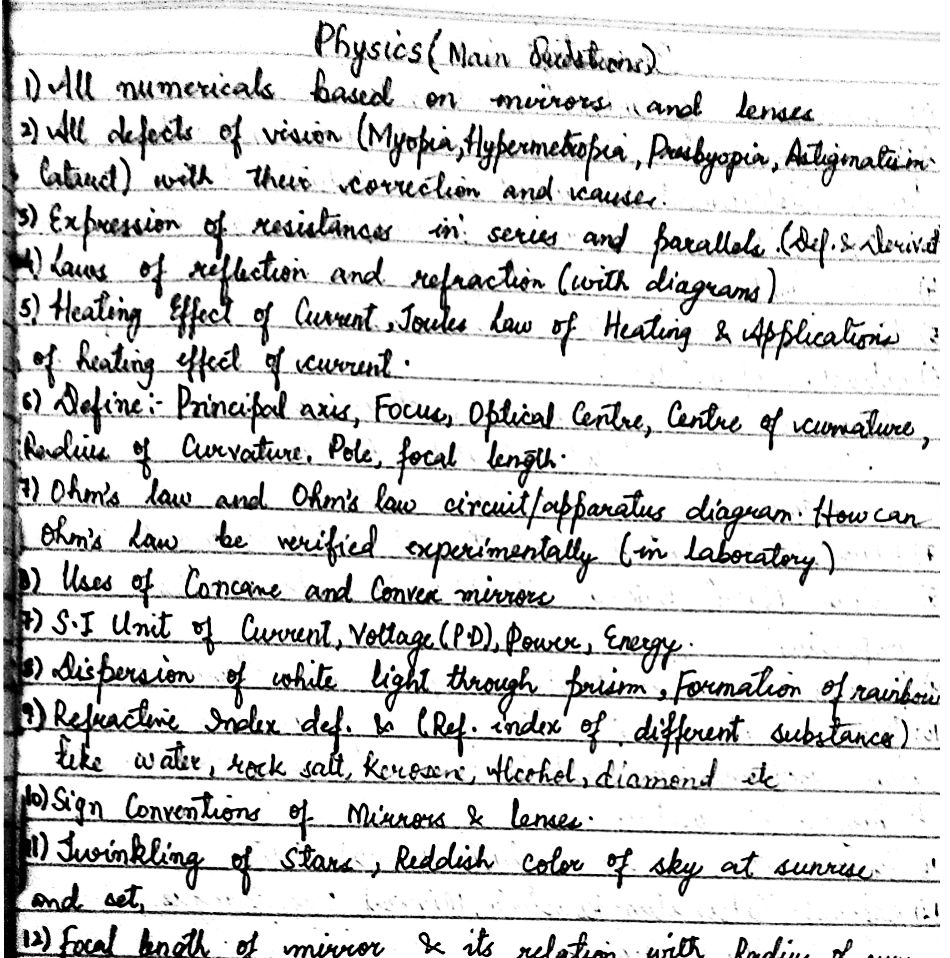 Physics (Main Questions)
1) All numericals based on mirrors and lenses
2) All defects of vision (Myopia, Hypermetropia, Presbyopia, Astigmatism
Cataract) with their correction and causes.
3) Expression of resistances in series and parallels (Def. & Derivat
4) Laws of reflection and refraction (with diagrams)
5) Heating Effect of Current, Joules Law of Heating & Applications
of heating effect of current.
6) Define:- Principal axis, Focus, Optical Centre, Centre of curvature,
Radius of Curvature, Pole, focal length.
7) Ohm's law and Ohm's law circuit/apparatus diagram. How can
Ohm's Law be verified experimentally (in laboratory)
8) Uses of Concave and Convex mirrors
7) S.I Unit of Current, Voltage (P.D), Power, Energy.
8) Dispersion of white light through prism, Formation of rainbow
9) Refractive Index def. & (Ref. index of different substance)
like water, rock salt, Kerosene, Alcohol, diamond etc
10) Sign Conventions of Mirrors & lenses.
11) Twinkling of Stars, Reddish color of sky at sunrise
and set,
12) Focal length of mirror & its relation with Radius of